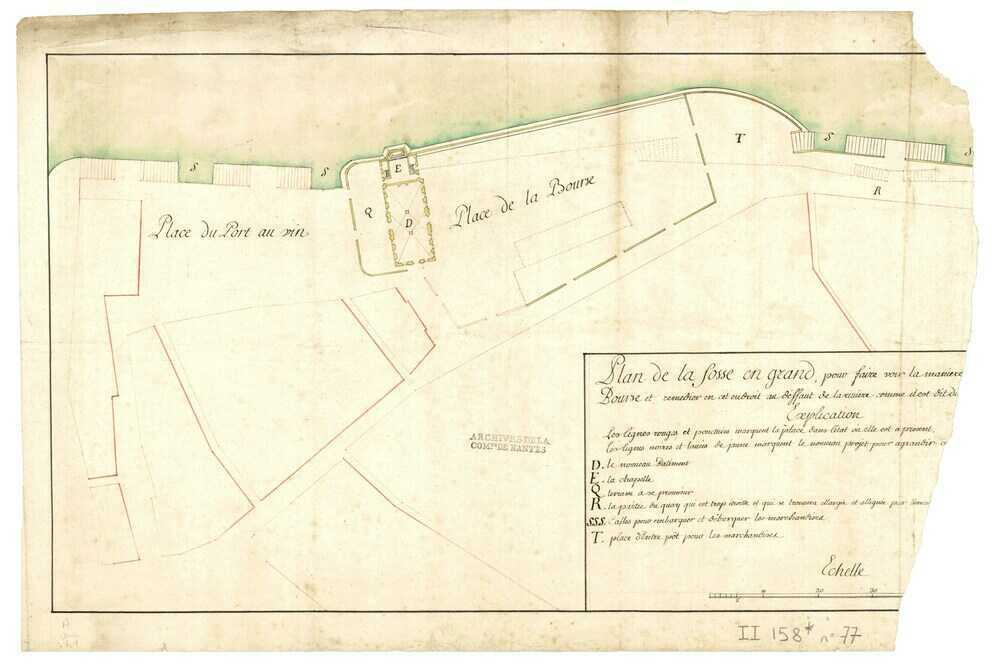 S
S
S
S
T
E
R
Q
D
Place du Port au vin
Place de la Bourse
Plan de la fosse en grand, pour faire voir la maniere
Bourse et remedier en cet endroit au deffaut de la riviere comme il est dit du
Explication
Les lignes rouges et ponctuées marquent la place dans l'état ou elle est a present,
les lignes noires et lavées de jaune marquent le nouveau projet pour agrandir
D. le nouveau Batiment
E. la chapelle
Q. terrain a se promener
R. la partie du quay qui est trop étroite et qui se trouvera élargie et alignée par
SSS. Calles pour embarquer et débarquer les marchandises
T. place d'Entre pôt pour les marchandises
Echelle
ARCHIVES DE LA
COMNE DE NANTES
II 158* n° 77